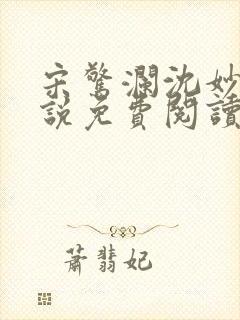 宋驚瀾沈妙
說免費閱讀
蕭翡妃